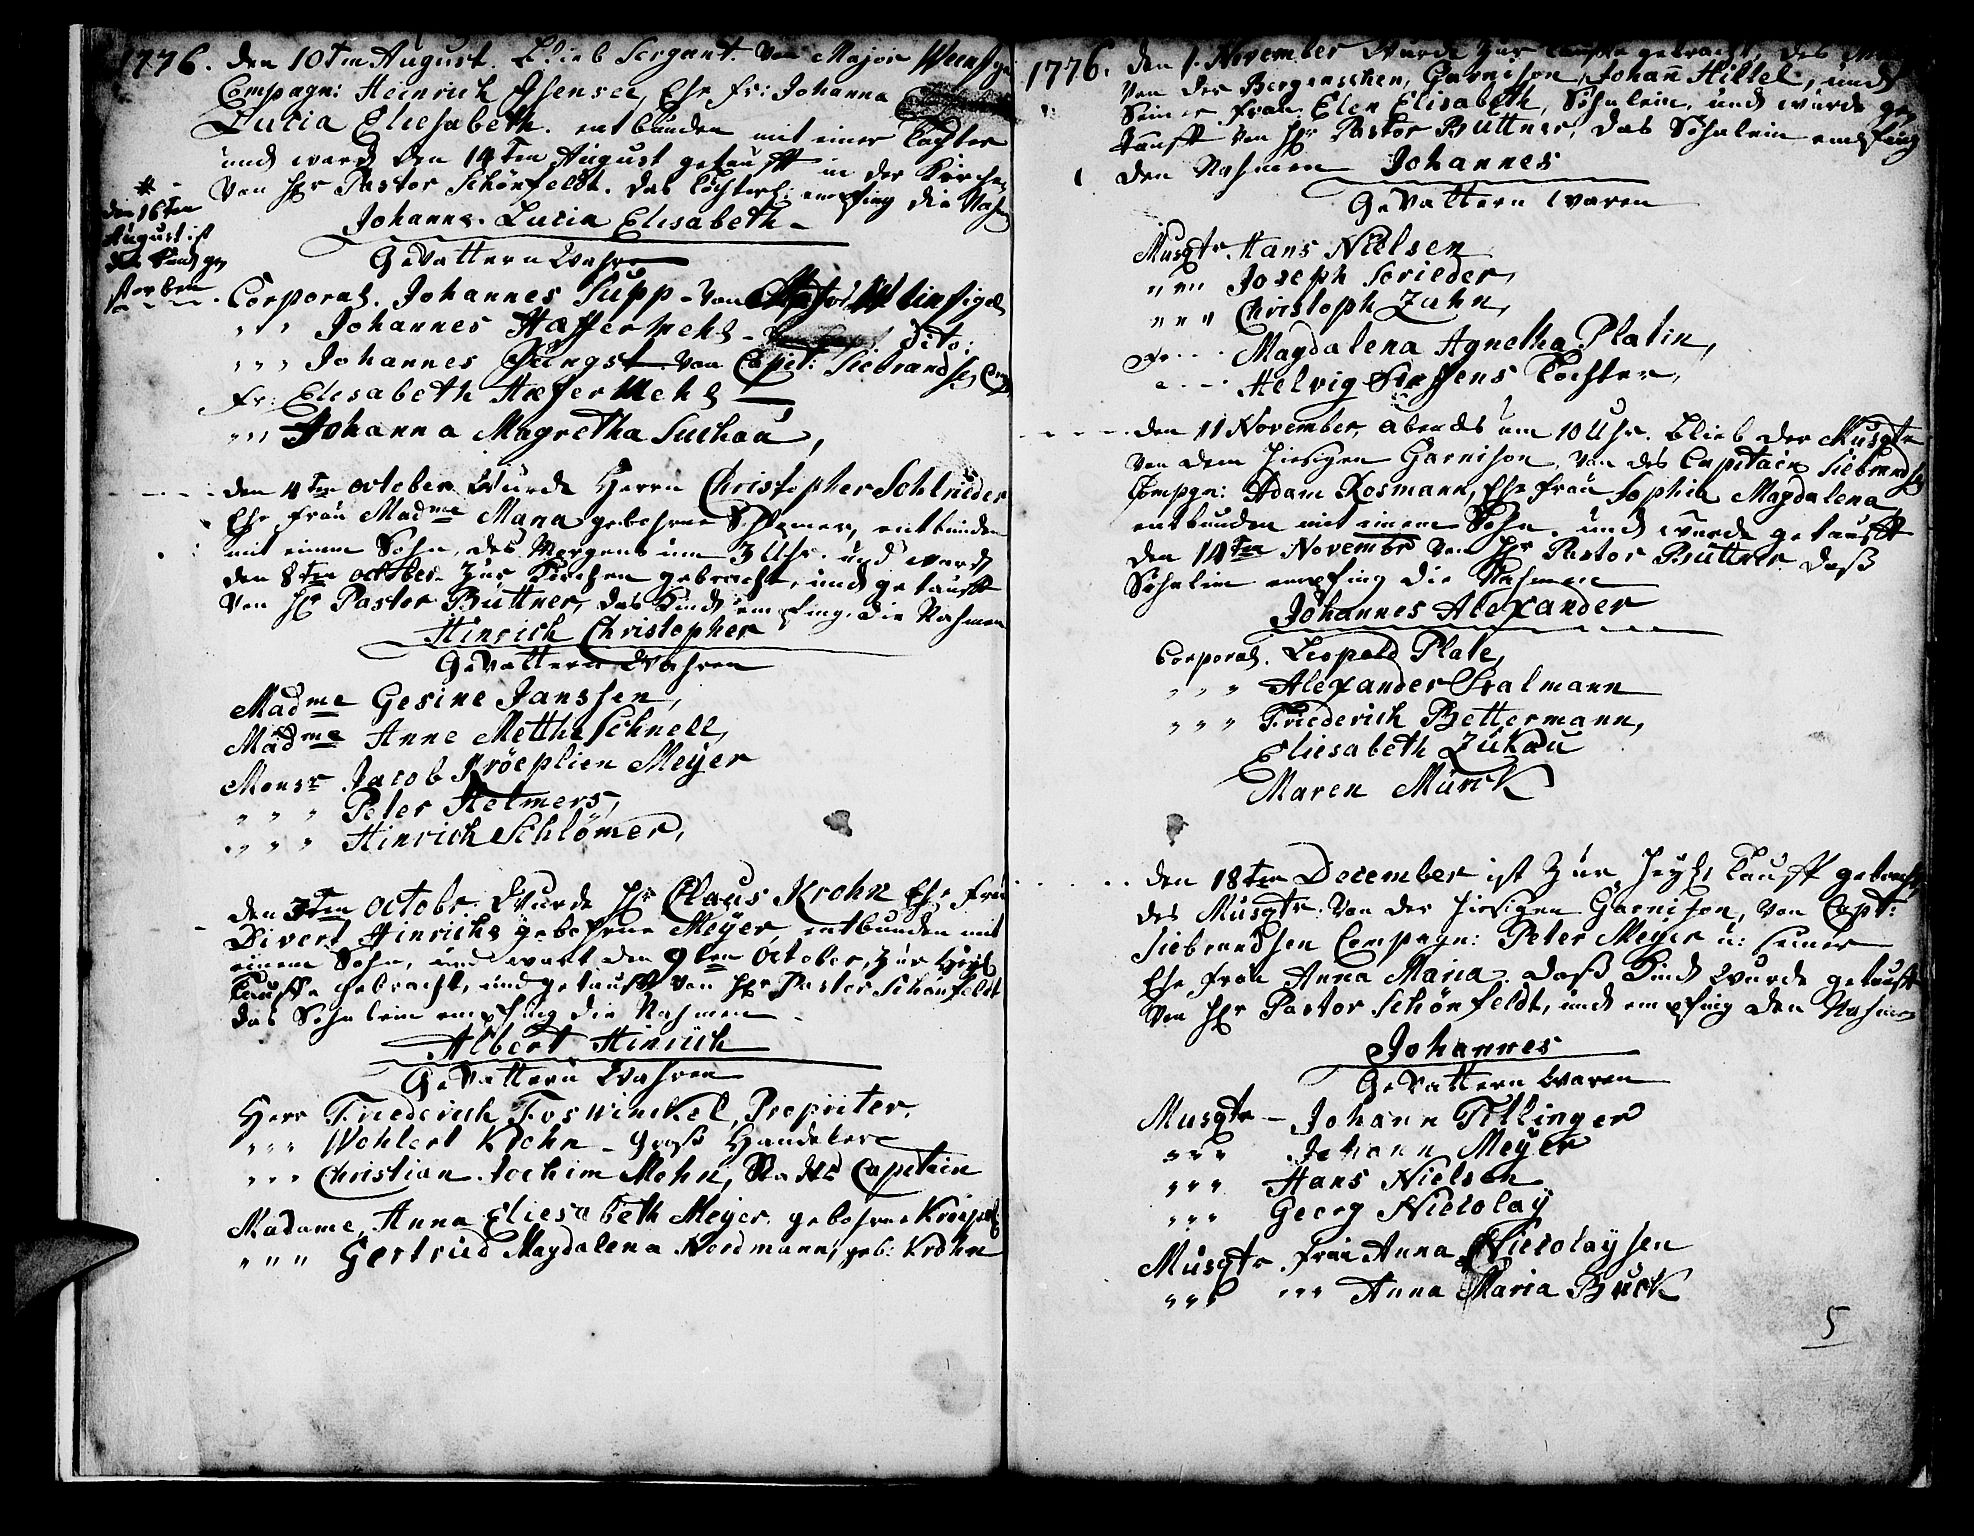 1776. den 10ten August. Blieb Sergant. Von Major
Compagn: Heinrich Isensee, Ehe fr: Johanna
Lucia Eliesabeth. entbunden mit einer Tochter
und ward den 14ten August getaufft in der Kirchen
Von Hr Pastor Schönfeldt. das Töchterl: empfing die Nahm
Johanna. Lucia Elisabeth
#
den 16ten
August ist
das Kind ge
storben
Gevattern Wahren
Corporal. Johannes Supp - Von
" " " Johannes Hæfferwehl - Dito:
" " " Johannes Jüngst Von Capit: Siebrands Comp
Fr: Elisabeth Hæferwehl
" " " Johanna Magretha Suchau,
den 4ten October Wurde Herrn Christopher Schlrieder
Ehe frau Madme Maria gebohrne, entbunden
mit einem Sohn, des Morgens um 3 Uhr. und ward
den 8ten october. Zur Kirchen gebracht, und getaufft
Von Hr Pastor Büttner, das Kind empfing die Nahmen
Hinrich Christopher
Gevattern Wahren
Madme Gesine Janssen,
Madme Anne Metthe Schnell,
Monsr Jacob Kröeplien Meÿer
" " " Peter Helmers,
" " " Hinrich Schlömer,
den 3ten octobr. Wurde Hr Claus Krohn Ehe frau
Divert Hinrichs gebohrne Meÿer, entbunden mit
einem Sohn, und wart den 9ten October, zur Heÿl
Tauffe gebracht, und getaufft Von Hr Pastor Schönfeldt
das Sohnlein empfing die Nahmen
Albert Hinrich
Gevattern Wahren
Herr Friederich Foswinckel, Propriter,
" " " Wohlert Krohn - Gross Handeler
" " " Christian Jochim Mohn, Stadts Capitain
Madame, Anna Eliesabeth Meÿer. gebohrne Kröepel
" " " Gertrued Magdalena Nordmann, geb: Krohn
1776. den 1. November Wurde zur Tauffe gebracht, des
Von der Bergenschen, Garnison, Johann Hittel, und
Seiner frau Elen Elisabeth, Söhnlein, und wurde ge
taufft Von Hr Pastor Büttner, das Söhnlein empfing
den Nahmen Johannes
Gevattern Waren
Musqtr Hans Nielsen
" " " Joseph Srieder,
" " " Christoph Zahn,
Fr. Magdalena Agnetha Platin,
Helvig Steffens Tochter,
den 11 November, abends um 10 Uhr. Blieb der Musqtr
Von dem hiesigen Garnison, Von des Capitain Siebrandsen
Compgn: Adam Kosmann, Ehe frau Sophia Magdalena
entbunden mit einem Sohn, und wurde getaufft
den 14ten Novembr Von Hr Pastor Büttner. daß
Söhnlein empfing die Nahmen
Johannes Alexander
Corporal. Leopold Plate,
" " " Alexander Stalmann
" " " Friederich Bettermann,
Eliesabeth Zükau
Maren Münk
den 18ten December ist zur Heyl. Taufft gebracht
des Musqtr: Von der hiesigen Garnison, Von Capt:
Siebrandsen Compagn: Peter Meyer u: seiner
Ehe frau Anna Maria. daß Kind Wurde getaufft
Von Hr Pastor Schönfeldt, und empfing den Nahmen
Johannes
Gevattern Waren
Musqtr - Johann Titlinger
" " " Johann Meÿer
" " " Hans Nielsen
" " " Georg Nicolaÿ
Musqtr. frau Anna Nicolaysen
" " " " " " Anna Maria Buck
5